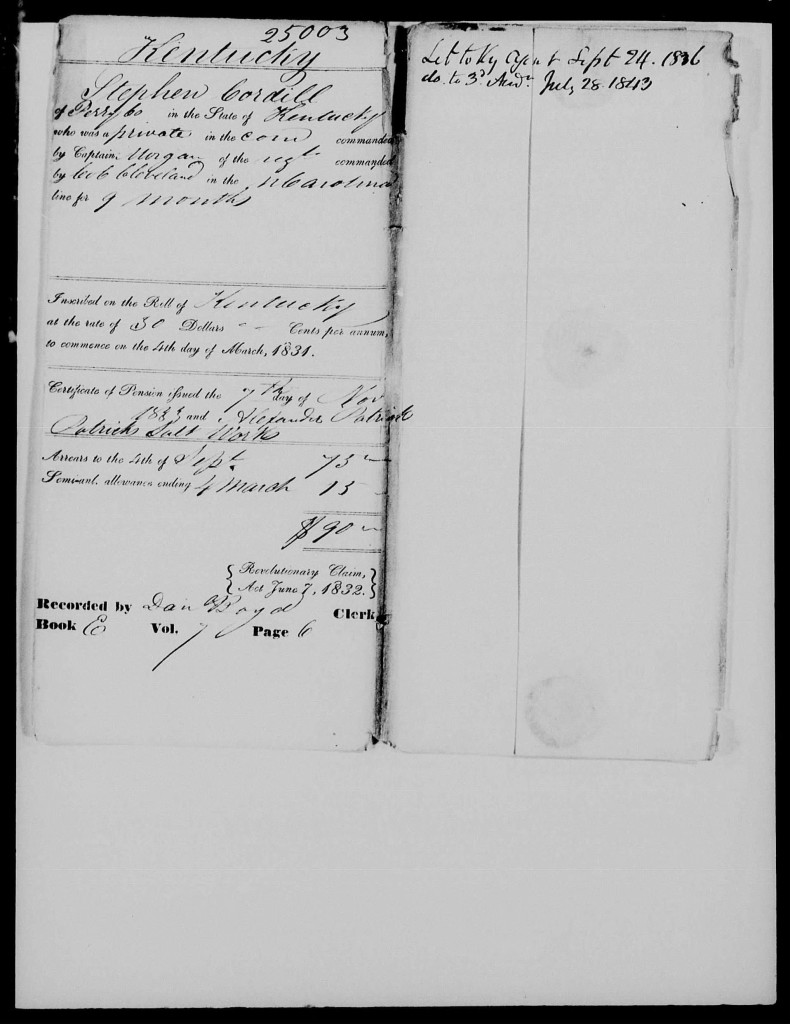 25003
Kentucky
Stephen Cordill
of Perry Co in the State of Kentucky
who was a private in the com commanded
by Captain Morgan of the regt commanded
by Col Cleveland in the N Carolina
line for 9 months
Inscribed on the Roll of Kentucky
at the rate of 30 Dollars - - Cents per annum,
to commence on the 4th day of March, 1831.
Certificate of Pension issued the 7th day of Nov
1833 and Alexander Patrick
Patricks Salt Works
Arrears to the 4th of Sept. 75
Semi-anl. allowance ending 4 March 15
$90
{ Revolutionary Claim, }
{ Act June 7, 1832. }
Recorded by Dan Boyd Clerk
Book E Vol. 7 Page 6
Let to Ky Agent Sept 24. 1836
do. to 3d Audr. July 28 1843